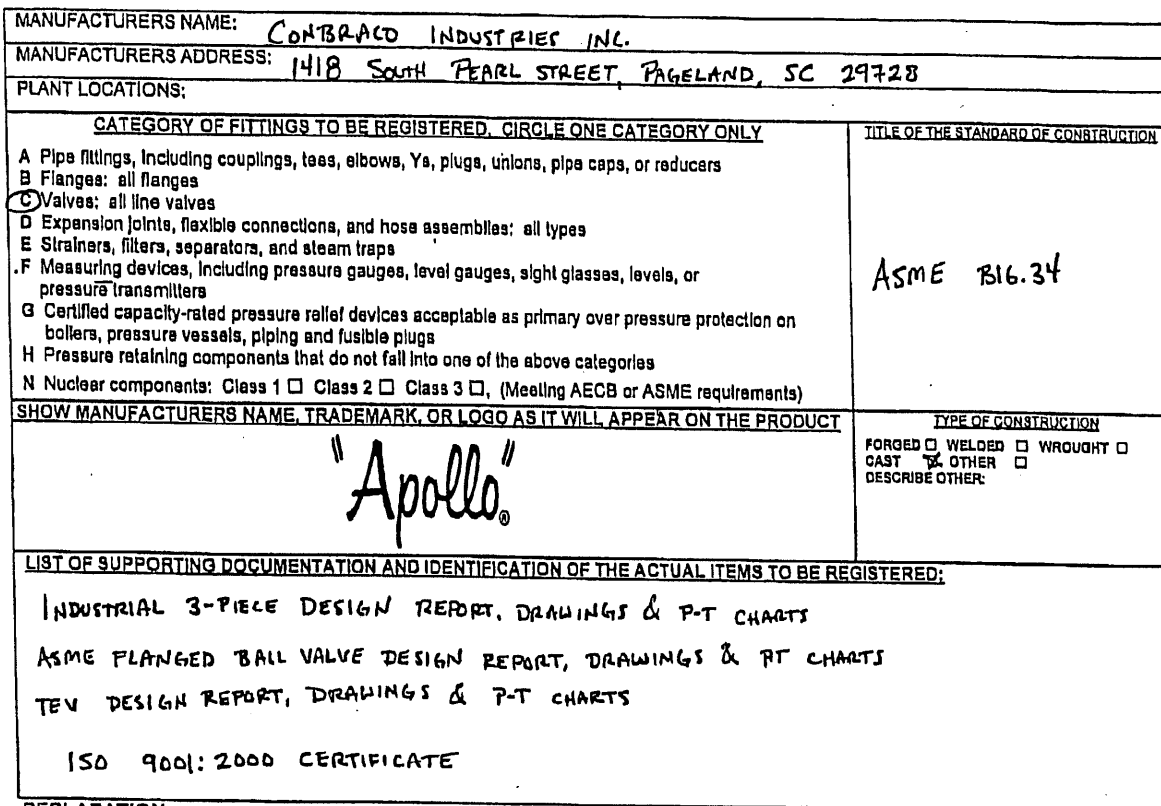 MANUFACTURERS NAME: CONBRACO INDUSTRIES INC.
MANUFACTURERS ADDRESS: 1418 SOUTH PEARL STREET, PAGELAND, SC 29728
PLANT LOCATIONS:
CATEGORY OF FITTINGS TO BE REGISTERED, CIRCLE ONE CATEGORY ONLY
A Pipe fittings, including couplings, tees, elbows, Ys, plugs, unions, pipe caps, or reducers
B Flanges: all flanges
C Valves: all line valves
D Expansion joints, flexible connections, and hose assemblies: all types
E Strainers, filters, separators, and steam traps
F Measuring devices, including pressure gauges, level gauges, sight glasses, levels, or
pressure transmitters
G Certified capacity-rated pressure relief devices acceptable as primary over pressure protection on
boilers, pressure vessels, piping and fusible plugs
H Pressure retaining components that do not fall into one of the above categories
N Nuclear components: Class 1 ☐ Class 2 ☐ Class 3 ☐, (Meeting AECB or ASME requirements)
TITLE OF THE STANDARD OF CONSTRUCTION
ASME B16.34
SHOW MANUFACTURERS NAME, TRADEMARK, OR LOGO AS IT WILL APPEAR ON THE PRODUCT
"Apollo"®
TYPE OF CONSTRUCTION
FORGED ☐ WELDED ☐ WROUGHT ☐
CAST ☒ OTHER ☐
DESCRIBE OTHER:
LIST OF SUPPORTING DOCUMENTATION AND IDENTIFICATION OF THE ACTUAL ITEMS TO BE REGISTERED:
INDUSTRIAL 3-PIECE DESIGN REPORT, DRAWINGS & P-T CHARTS
ASME FLANGED BALL VALVE DESIGN REPORT, DRAWINGS & PT CHARTS
TEV DESIGN REPORT, DRAWINGS & P-T CHARTS
ISO 9001:2000 CERTIFICATE